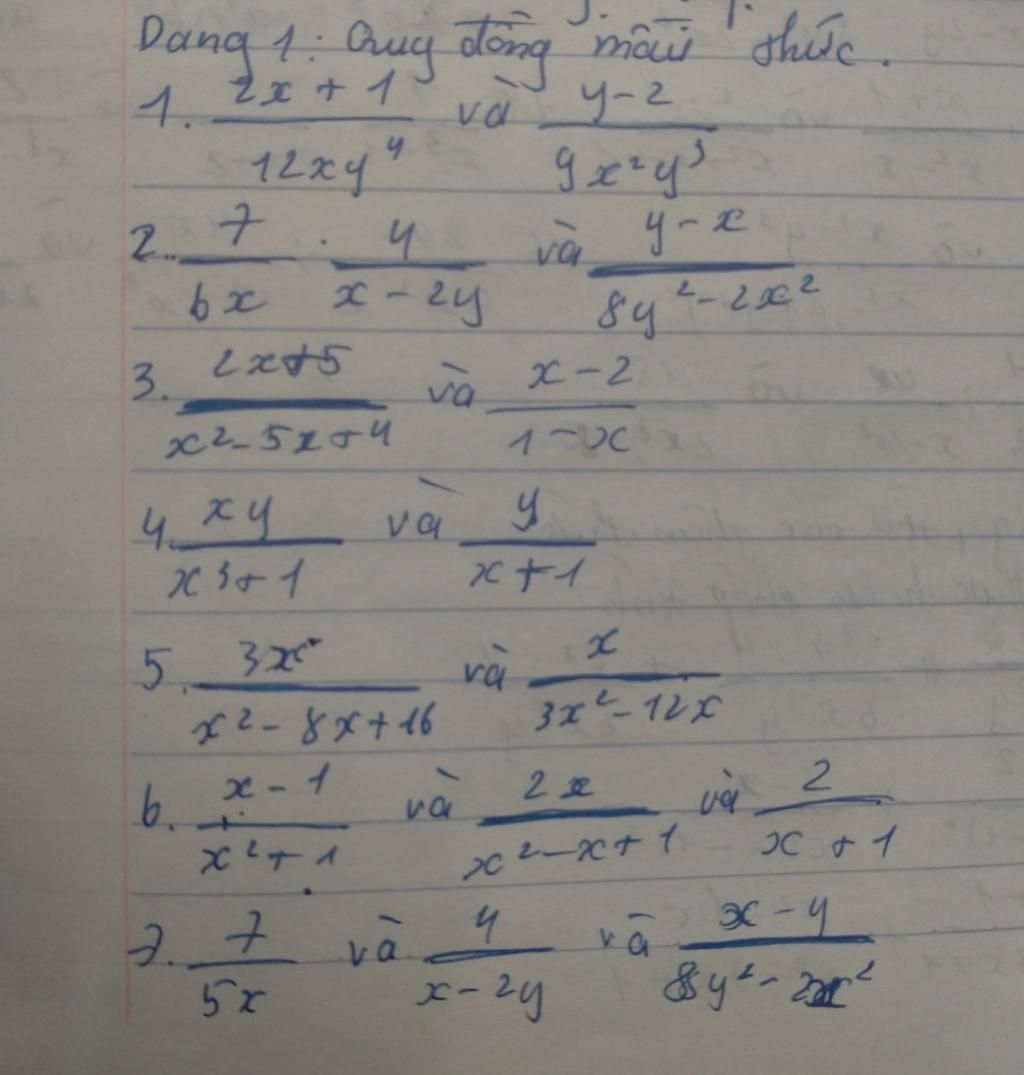 Dạng 1: Quy đồng mẫu thức.
1. (2x + 1)/(12xy⁴) và (y - 2)/(9x²y³)
2. 7/(6x) . 4/(x - 2y) và (y - x)/(8y² - 2x²)
3. (2x+5)/(x² - 5x + 4) và (x - 2)/(1 - x)
4. xy/(x³ + 1) và y/(x + 1)
5. 3x/(x² - 8x + 16) và x/(3x² - 12x)
6. (x - 1)/(x² + 1) và 2x/(x² - x + 1) và 2/(x + 1)
7. 7/(5x) và 4/(x - 2y) và (x - y)/(8y² - 2x²)